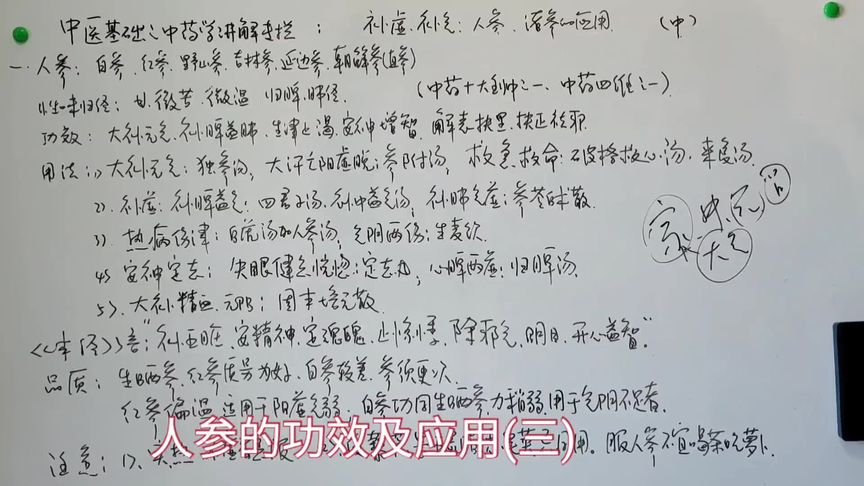 中医基础、中药学讲解专栏： 补虚、补气：人参、诸参的应用 （中）
一、人参：白参、红参、野山参、吉林参、延边参、朝鲜参(直参)
性味归经：甘、微苦、微温 归脾、肺经. （中药十大剑中之一、中药四维之一）
功效：大补元气、补脾益肺、生津止渴、安神增智、解表扶里、扶正祛邪
用法：1)大补元气：独参汤，大汗亡阳虚脱：参附汤，救急救命：破格救心汤、来复汤.
2).补虚：补脾益气：四君子汤、补中益气汤，补肺气虚：参苓白术散.
3).热病伤津：白虎汤加人参汤，气阴两伤：生麦饮
4).安神定志：失眠健忘恍惚：定志丸，心脾两虚：归脾汤.
5).大补精血、元阳：固本培元散.
《本经》言："补五脏、安精神、定魂魄、止惊悸、除邪气、明目、开心益智"
品质：生晒参、红参质量为好、白参较差、参须更次.
红参偏温、适用于阳虚气弱、白参功同生晒参力稍弱、用于气阴不足者.
注意：1)、实热 用。服人参不宜喝茶吃萝卜.
大气
人参的功效及应用(三)